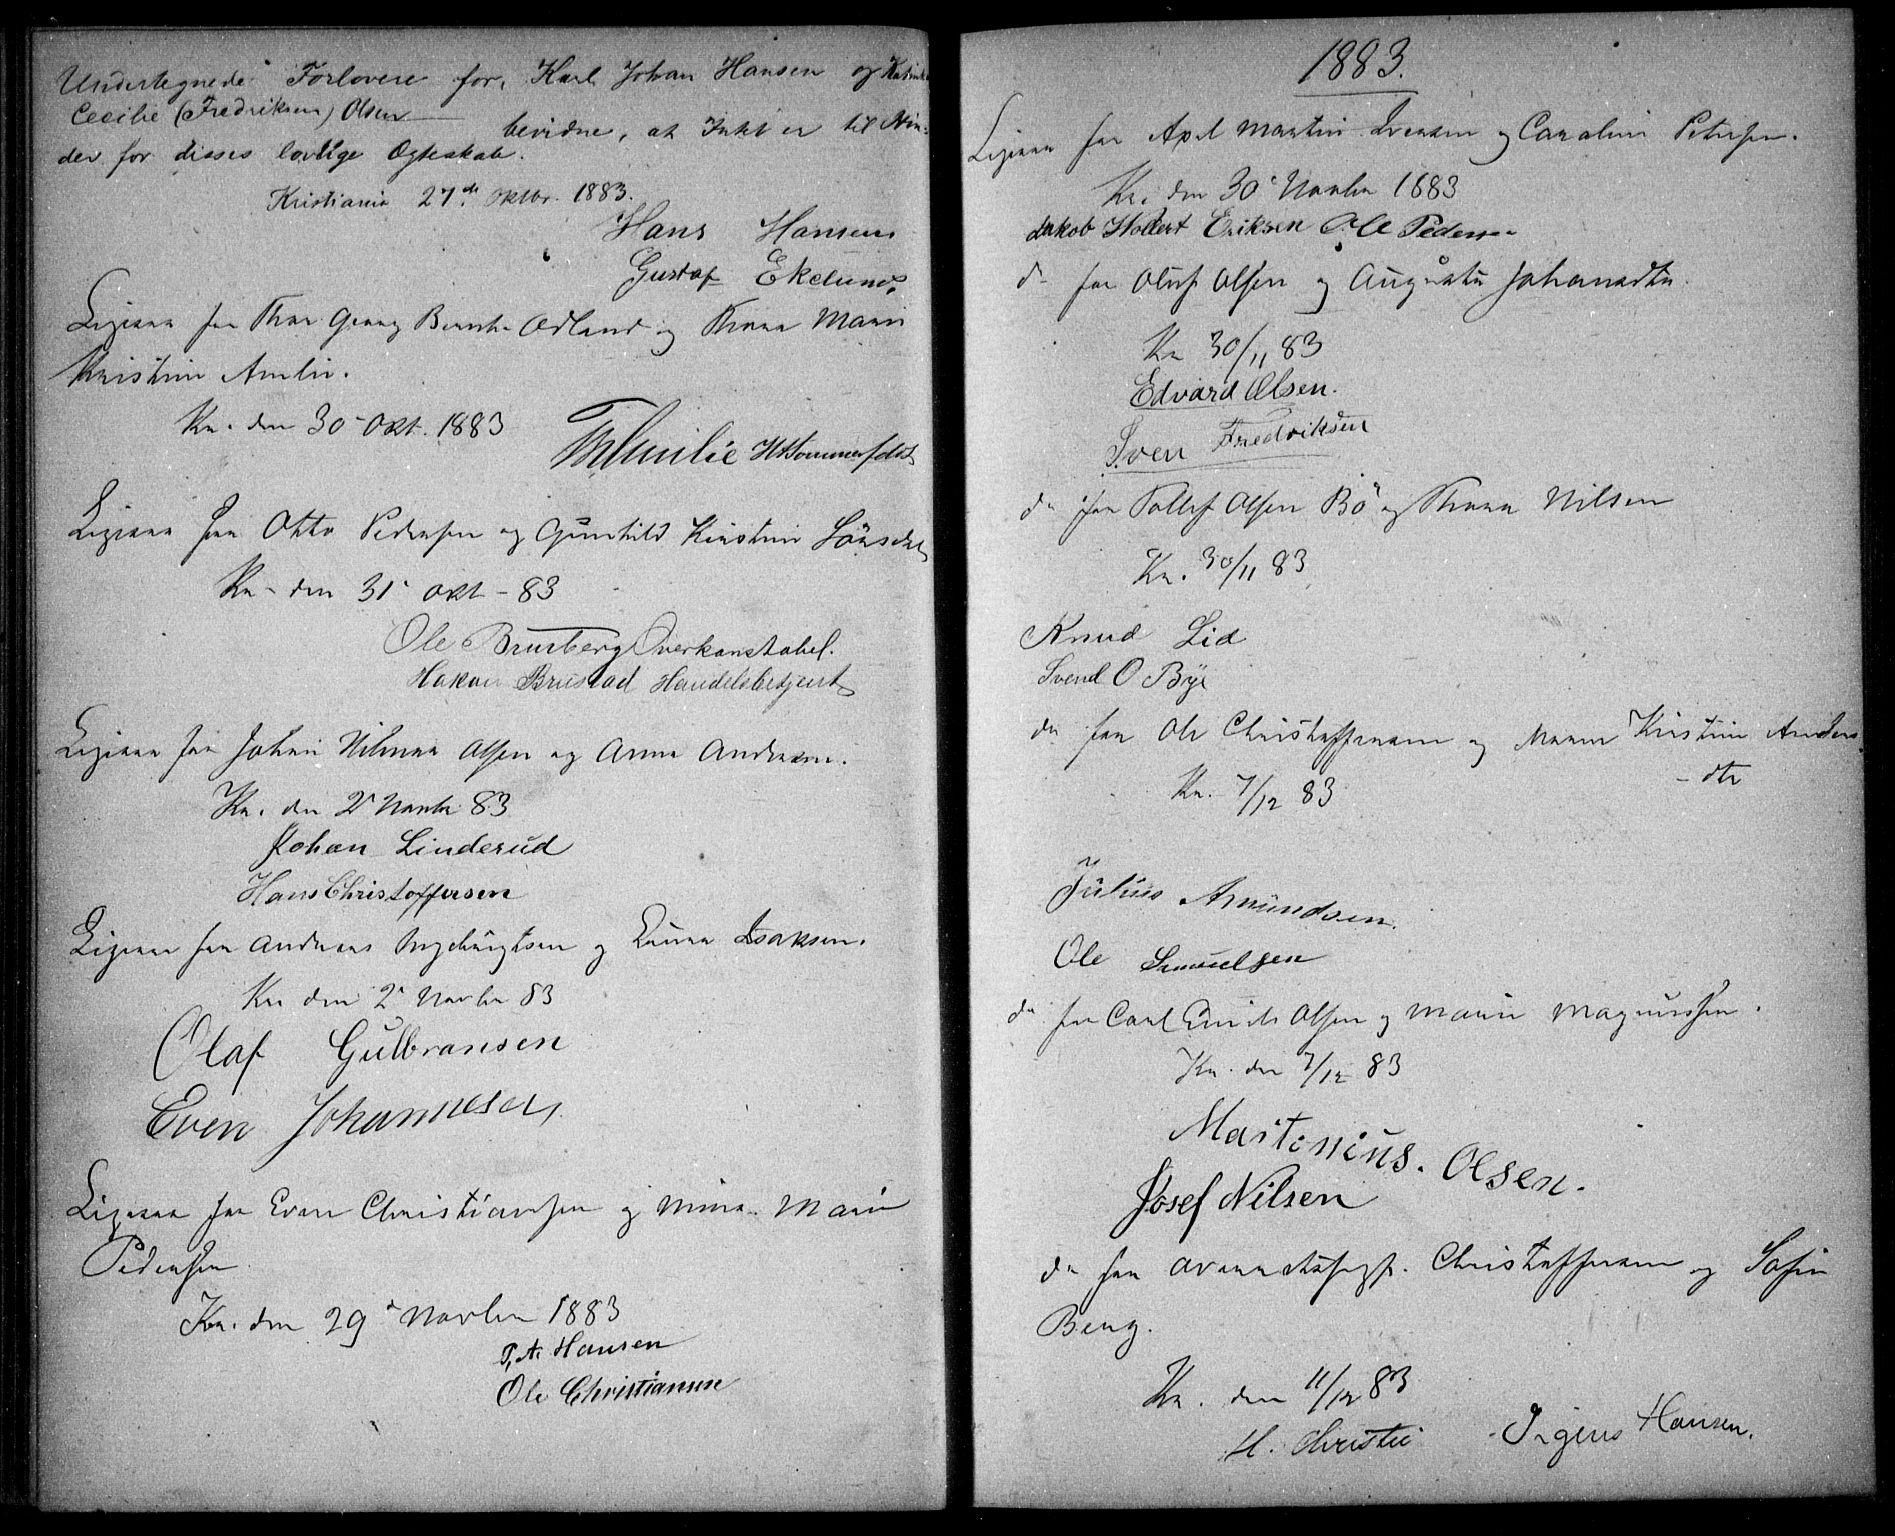 Undertegnede Forlovere for, Karl Johan Hansen og
Cecilie (Fredriksen) Olsen
bevidne, at Intet er til Hin-
der for disses lovlige Ægteskab.
Kristiania 27de Oktbr. 1883.
Hans Hansen
Gustaf Ekelund
Ligesaa for Thor Georg Berentz Odland og Thora Marie
Kristine Amlie.
Kr. den 30 Okt. 1883
Th Amlie H Sommerfeldt
Ligesaa for Otto Pedersen og Gunhild Kirstine
Kr. den 31 Okt - 83
Ole Brusberg Overkonstabel.
Hakon Brustad Handelsbetjent
Ligesaa for Johan Hilmar Olsen og Anna Andersen.
Kr. den 2 Novbr 83
Johan Linderud
Hans Christoffersen
Ligesaa for Andreas Ingebrigtsen og Laura Isaksen.
Kr den 2 Novbr 83
Olaf Gulbransen
Even Johannesen
Ligesaa for Even Christiansen og Mina Marie
Pedersen
Kr. den 29 Novbr 1883
P. A. Hansen
Ole Christiansen
1883.
Ligesaa for Axel Martin Iversen og Caroline Petersen.
Kr. den 30 Novbr 1883
Jakob Holbert Eriksen Ole Pedersen
do for Oluf Olsen og Augusta Johansdtr.
Kr 30/11 83
Edvard Olsen.
Sven Fredriksen
do for Tollef Olsen Bö og Thora Nilsen
Kr. 30/11 83
Knud Lid
Svend O Bye
do for Ole Christoffersen og Maren Kristine Anders
- dtr
Kr. 7/12 83
Julius Amundsen.
Ole Samuelsen
do for Carl Emil Olsen og Marie Magnussen.
Kr. den 7/12 83
Martinius. Olsen.
Josef Nilsen
do for Christoffersen og Sofie
Berg.
Kr. den 11/12 83
H. Christie Jrgens Hansen.